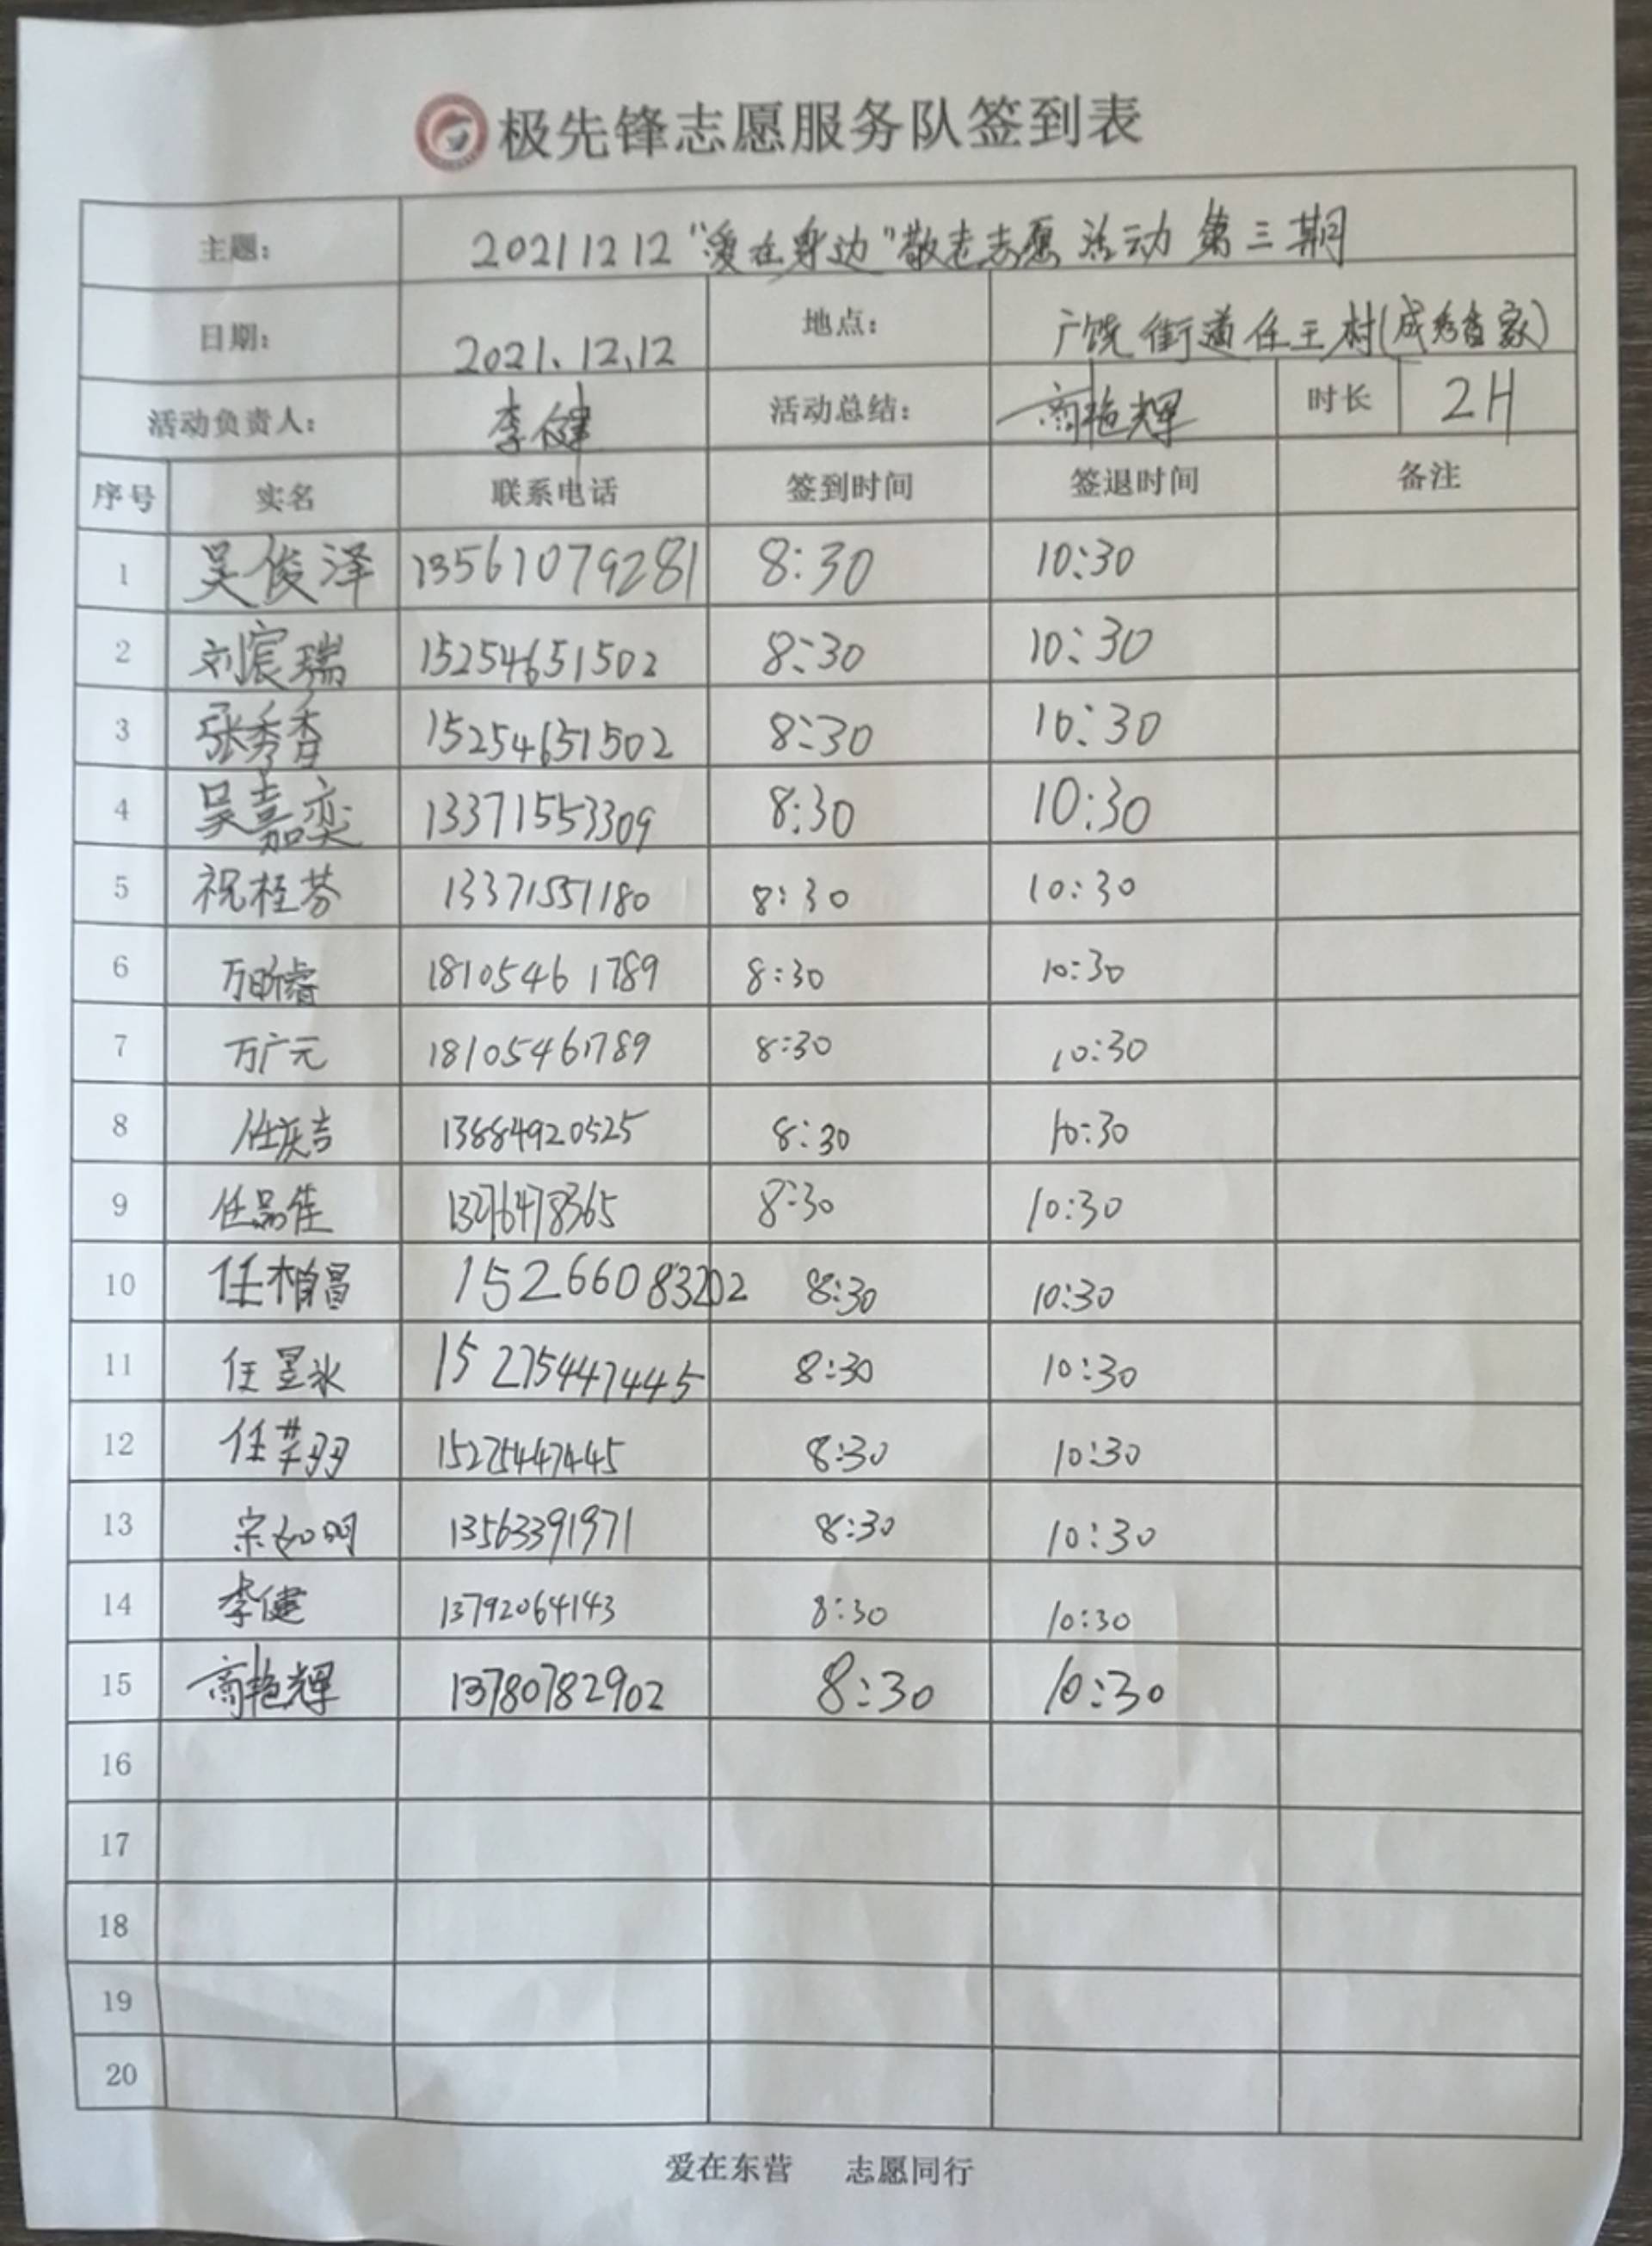 极先锋志愿服务队签到表
主题： 20211212"爱在身边"敬老志愿活动第三期
日期： 2021.12.12 地点： 广饶街道任王村(成秀香家)
活动负责人： 李健 活动总结： 商艳辉 时长 2H
序号 实名 联系电话 签到时间 签退时间 备注
1 吴俊泽 13561079281 8:30 10:30
2 刘宸瑞 15254651502 8:30 10:30
3 张秀香 15254651502 8:30 10:30
4 吴嘉奕 13371553309 8:30 10:30
5 祝桂芬 13371551180 8:30 10:30
6 万昕睿 18105461789 8:30 10:30
7 万广元 18105461789 8:30 10:30
8 任庆吉 13884920525 8:30 10:30
9 任品佳 13276478365 8:30 10:30
10 任柏昌 15266083202 8:30 10:30
11 任昱冰 15275447445 8:30 10:30
12 任芊羽 15275447445 8:30 10:30
13 宗如明 13563391971 8:30 10:30
14 李健 13792064143 8:30 10:30
15 商艳辉 13780782902 8:30 10:30
16
17
18
19
20
爱在东营 志愿同行